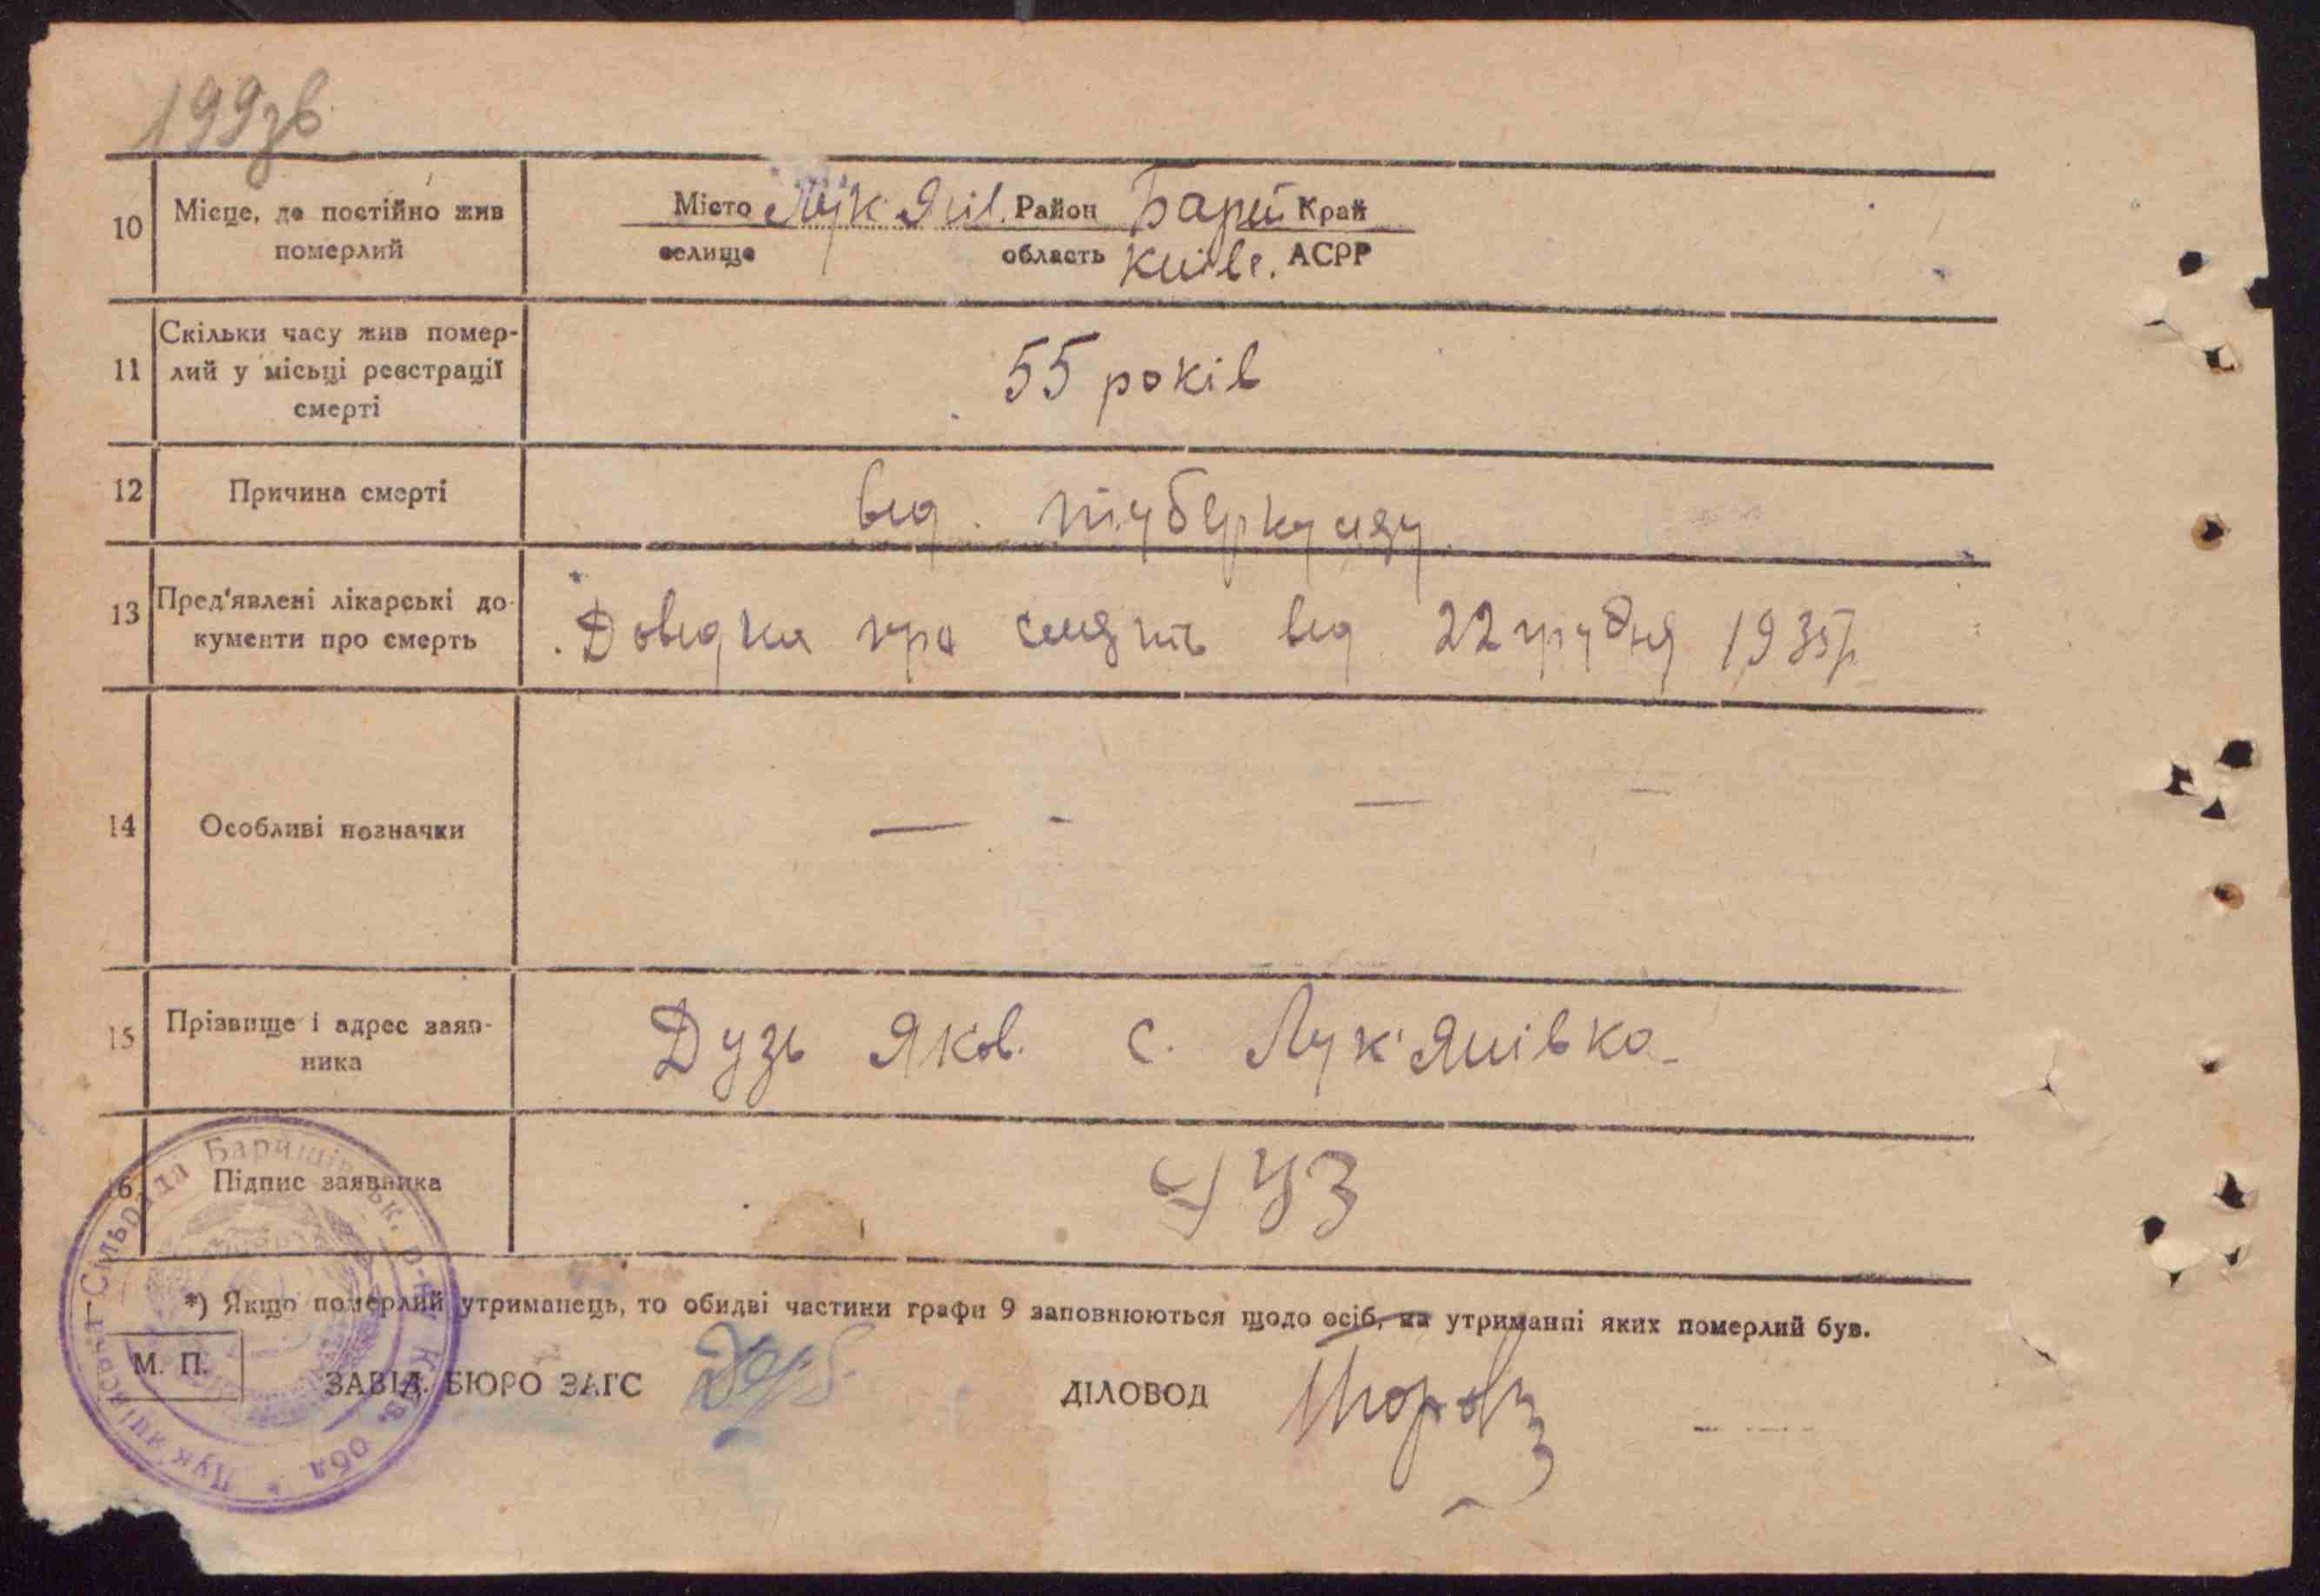 199зв
10 Місце, де постійно жив померлий
Місто Лук'янів. Район Бариш Край
селище область Київс. АСРР
11 Скільки часу жив помер-
лий у місьці реєстрації
смерті
55 років
12 Причина смерті
від туберкульозу
13 Пред'явлені лікарські до-
кументи про смерть
Довідка про смерть від 22 грудня 1935 р
14 Особливі позначки
— - — —
15 Прізвище і адрес заяв-
ника
Дузь Яков. с. Лук'янівка
16 Підпис заявника
Дуз
*) Якщо померлий утриманець, то обидві частини графи 9 заповнюються щодо осіб, на утриманні яких померлий був.
М. П.
ЗАВІД. БЮРО ЗАГС
ДІЛОВОД
Сільрада Баришівськ. р-ну Київ. обл. * Лук'янівська